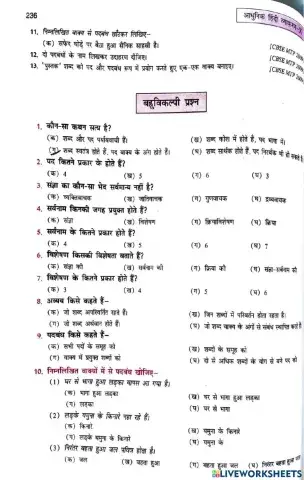 236
आधुनिक हिंदी व्याकरण-
11. निम्नलिखित वाक्य से पदबंध छाँटकर लिखिए-
(क) सफेद घोड़े पर बैठा हुआ सैनिक साहसी है।
[CBSE MTP
12. दो पदबंधों के नाम लिखकर उदाहरण दीजिए।
[CBSE MTP
13. 'पुस्तक' शब्द को पद और पदबंध रूप में प्रयोग करते हुए एक-एक वाक्य बनाइए।
[CBSE MTP
बहुविकल्पी प्रश्न
1. कौन-सा कथन सत्य है?
(क) शब्द और पद पर्यायवाची हैं। (ख) शब्द कोश में होते हैं, पद भाषा में।
शब्द स्वतंत्र होते हैं, पद वाक्य के अंग होते हैं। (घ) शब्द सार्थक होते हैं, पद निरर्थक भी हो सकते हैं।
2. पद कितने प्रकार के होते हैं?
(क) 4 (ख) 5 (ग) 6 (घ) 3
3. संज्ञा का कौन-सा भेद सर्वमान्य नहीं है?
(क) व्यक्तिवाचक (ख) जातिवाचक (ग) गुणवाचक (घ) द्रव्यवाचक
4. सर्वनाम किनकी जगह प्रयुक्त होते हैं?
(क) संज्ञा (ख) विशेषण (ग) क्रियाविशेषण (घ) क्रिया
5. सर्वनाम के कितने प्रकार होते हैं?
(क) 4 (ख) 5 (ग) 6 (घ) 7
6. विशेषण किसकी विशेषता बताते हैं?
(क) संज्ञा की (ख) सर्वनाम की (ग) क्रिया की (घ) संज्ञा-सर्वनाम की
7. विशेषण के कितने प्रकार होते हैं?
(क) 3 (ख) 4 (ग) 5 (घ) 6
8. अव्यय किसे कहते हैं-
(क) जो शब्द अपरिवर्तित रहते हैं। (ख) जिन शब्दों में परिवर्तन होता रहता है।
(ग) जो शब्द अर्थवान होते हैं। (घ) जो शब्द वाक्य के अंगों से संबंध स्थापित करते हैं
9. पदबंध किसे कहते हैं-
(क) सभी पदों के समूह को (ख) शब्दों के समूह को
(ग) वाक्य में प्रयुक्त शब्दों को (घ) दो से अधिक शब्दों के योग से बने पद को
10. निम्नलिखित वाक्यों में से पदबंध खोजिए-
(1) घर से भागा हुआ लड़का वापस आ गया है।
(क) भागा हुआ लड़का (ख) घर से भागा हुआ लड़का
(ग) लड़का (घ) घर से भागा
(2) लड़के यमुना के किनारे नहा रहे हैं।
(क) किनारे (ख) यमुना के किनारे
(ग) लड़के यमुना के किनारे (घ) यमुना के
(3) निरंतर बहता हुआ जल पवित्र होता है।
(क) जल (ख) बहता हुआ (ग) बहता हुआ जल (घ) निरंतर बहता हुआ जल
LIVEWORKSHEETS